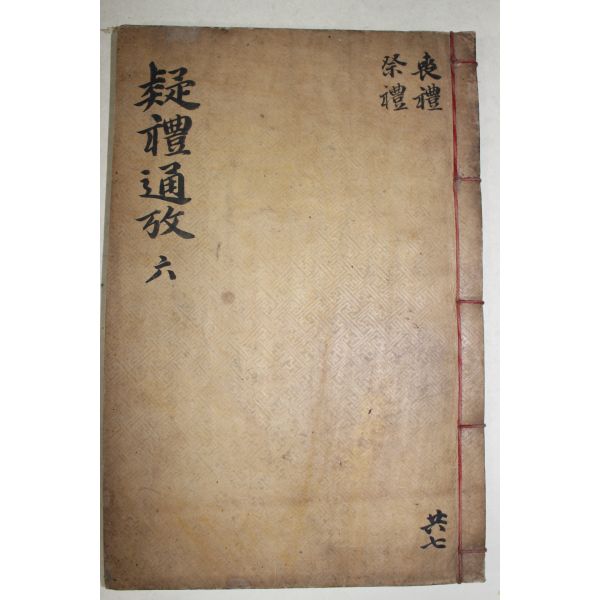 疑禮通攷 六
喪禮
祭禮
共七